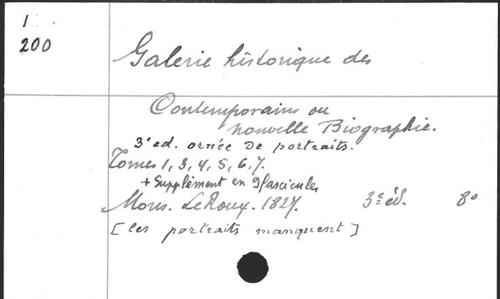 1
200
Galerie historique des
Contemporains ou
nouvelle Biographie.
3e ed. ornée de portraits.
Tomes 1, 3, 4, 5, 6, 7.
+ Supplément en 9 fascicules
Mons. Le Roux. 1827. 3e éd. 8o
[les portraits manquent]